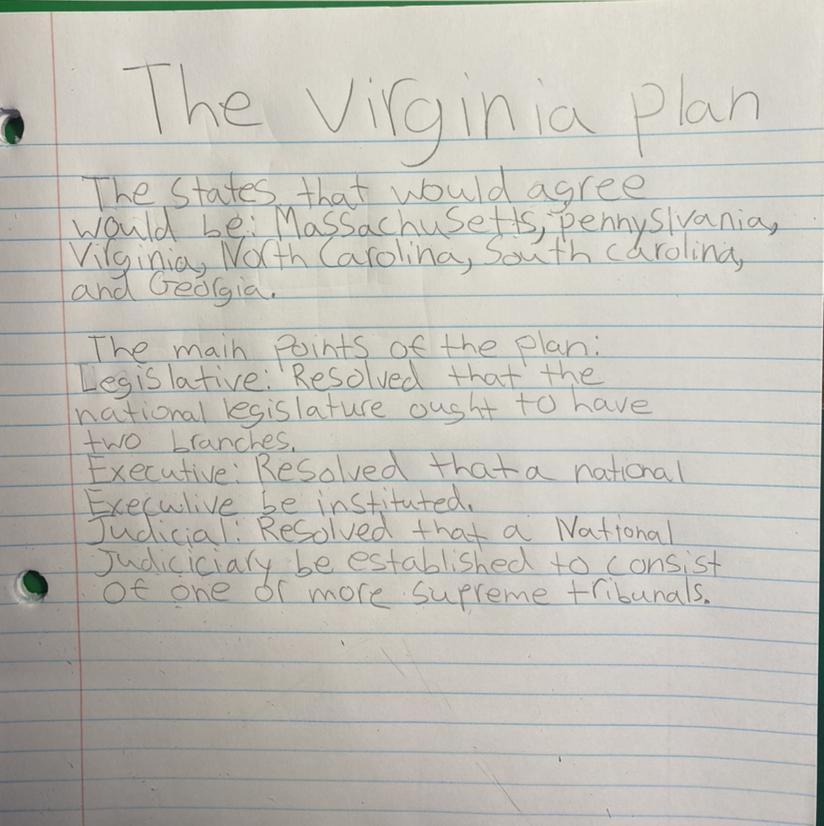 The Virginia plan
The States that would agree
would be: Massachusetts, pennyslvania,
Virginia, North Carolina, South carolina,
and Georgia.
The main points of the plan:
Legislative: Resolved that the
national legislature ought to have
two branches.
Executive: Resolved that a national
Execulive be instituted.
Judicial: Resolved that a National
Judiciciary be established to consist
of one or more supreme tribunals.